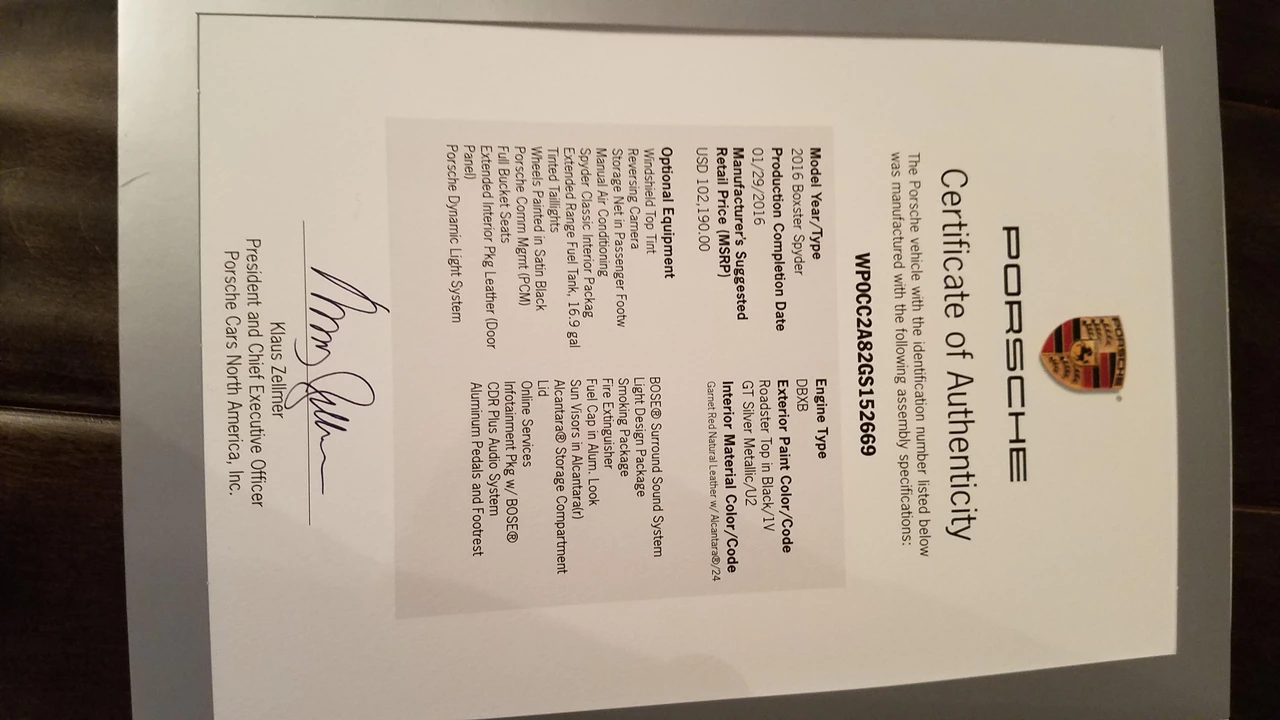 PORSCHE
PORSCHE
Certificate of Authenticity
The Porsche vehicle with the identification number listed below
was manufactured with the following assembly specifications:
WP0CC2A82GS152669
Model Year/Type
2016 Boxster Spyder
Production Completion Date
01/29/2016
Manufacturer's Suggested
Retail Price (MSRP)
USD 102,190.00
Engine Type
DBXB
Exterior Paint Color/Code
Roadster Top in Black/1V
GT Silver Metallic/U2
Interior Material Color/Code
Garnet Red Natural Leather w/ Alcantara®/24
Optional Equipment
Windshield Top Tint
Reversing Camera
Storage Net in Passenger Footw
Manual Air Conditioning
Spyder Classic Interior Packag
Extended Range Fuel Tank, 16.9 gal
Tinted Taillights
Wheels Painted in Satin Black
Porsche Comm Mgmt (PCM)
Full Bucket Seats
Extended Interior Pkg Leather (Door
Panel)
Porsche Dynamic Light System
BOSE® Surround Sound System
Light Design Package
Smoking Package
Fire Extinguisher
Fuel Cap in Alum. Look
Sun Visors in Alcantara(r)
Alcantara® Storage Compartment
Lid
Online Services
Infotainment Pkg w/ BOSE®
CDR Plus Audio System
Aluminum Pedals and Footrest
Klaus Zellmer
President and Chief Executive Officer
Porsche Cars North America, Inc.